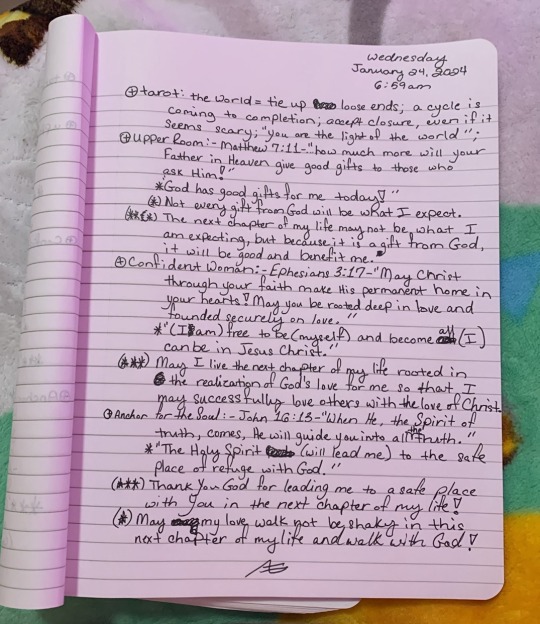 Wednesday
January 24, 2024
6:59am
⊕tarot: the World = tie up loose ends; a cycle is
coming to completion; accept closure, even if it
seems scary; "you are the light of the world";
⊕Upper Room:- Matthew 7:11-"how much more will your
Father in Heaven give good gifts to those who
ask Him!"
*God has good gifts for me today!"
(*) Not every gift from God will be what I expect.
(***) The next chapter of my life may not be, what I
am expecting, but because it is a gift from God,
it will be good and benefit me."
⊕Confident Woman:-Ephesians 3:17-"May Christ
through your faith make His permanent home in
your hearts! May you be rooted deep in love and
founded securely on love."
*"(I am) free to be (myself) and become all (I)
can be in Jesus Christ."
(***) May I live the next chapter of my life rooted in
the realization of God's love for me so that I
may successfully love others with the love of Christ.
⊕Anchor for the Soul:- John 16:13-"When He, the Spirit of
truth, comes, He will guide you into all the truth."
*"The Holy Spirit (will lead me) to the safe
place of refuge with God."
(***) Thank You God for leading me to a safe place
with You in the next chapter of my life!
(*) May my love walk not be shaky in this
next chapter of my life and walk with God!